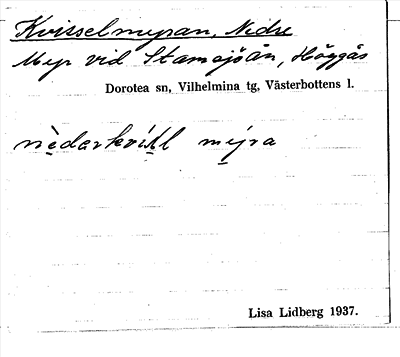 Kvisselmyran, Nedre
Myr vid Stamsjöån, Höggås
Dorotea sn, Vilhelmina tg, Västerbottens l.
nèdarkvítl mýra
Lisa Lidberg 1937.